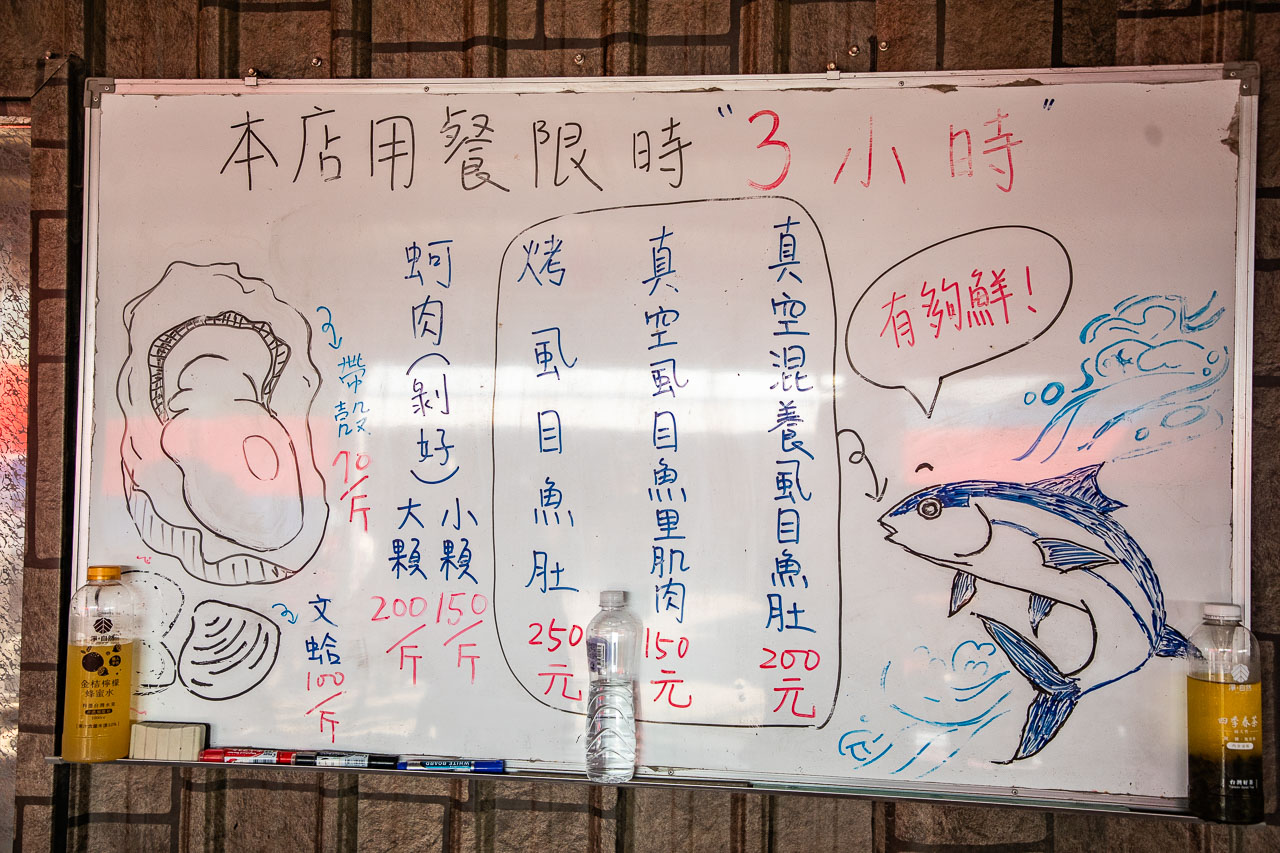 本店用餐限時"3小時"
真空混養虱目魚肚 200元
真空虱目魚里肌肉 150元
烤虱目魚肚 250元
蚵肉(剝好)
小顆 150/斤
大顆 200/斤
帶殼 70/斤
文蛤 100/斤
有夠鮮!
淨·自然
金桔檸檬
蜂蜜水
WHITE BOARD
四季春茶
台灣好茶